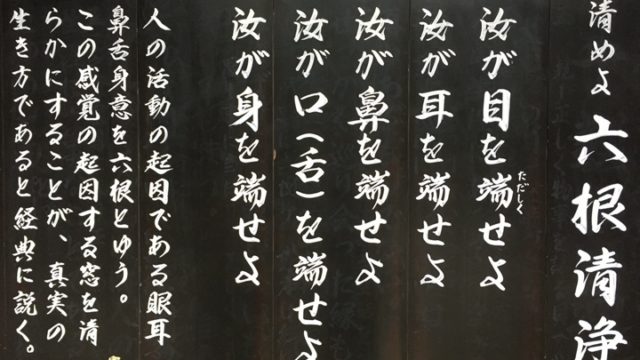 清めよ 六根清浄
汝が目を端せよ
ただしく
汝が耳を端せよ
汝が鼻を端せよ
汝が口(舌)を端せよ
汝が身を端せよ
人の活動の起因である眼耳
鼻舌身意を六根とゆう。
この感覚の起因する窓を清
らかにすることが、真実の
生き方であると経典に説く。